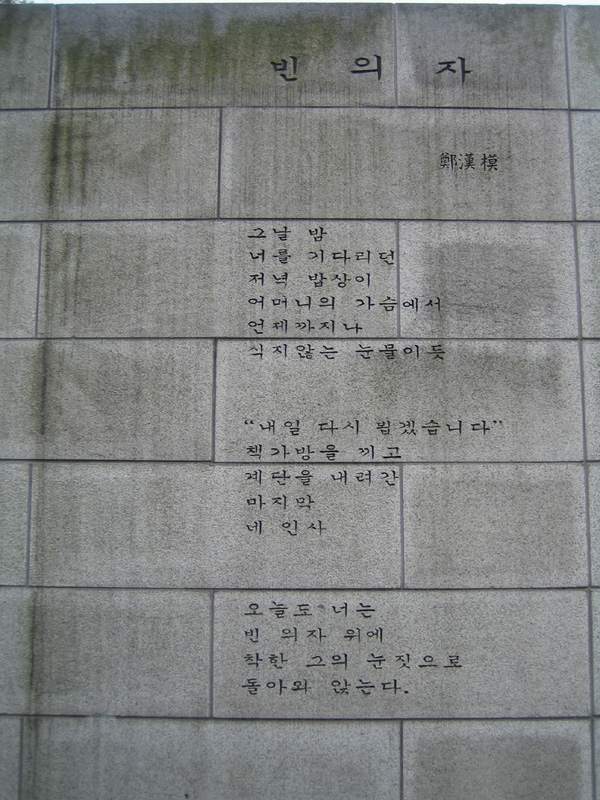 빈 의 자
鄭漢模
그날 밤
너를 기다리던
저녁 밥상이
어머니의 가슴에서
언제까지나
식지않는 눈물이듯
“내일 다시 뵙겠습니다”
책가방을 끼고
계단을 내려간
마지막
네 인사
오늘도 너는
빈 의자 위에
착한 그의 눈짓으로
돌아와 앉는다.